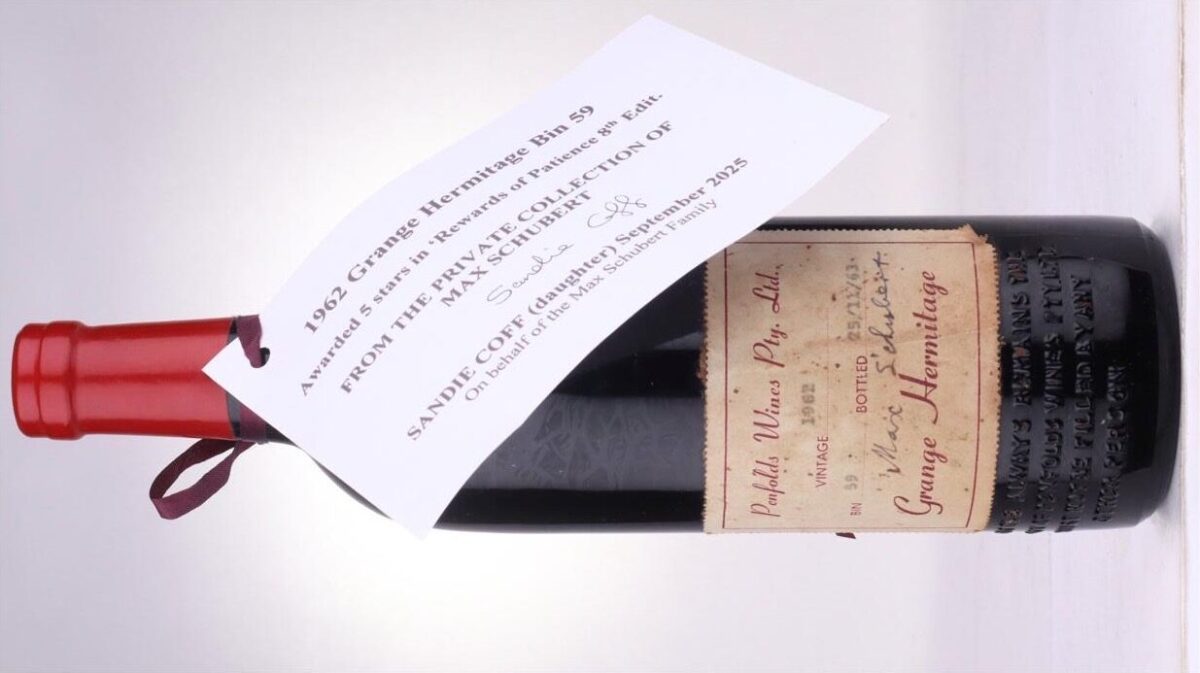 1962 Grange Hermitage Bin 59
Awarded 5 stars in ‘Rewards of Patience 8th Edit.
FROM THE PRIVATE COLLECTION OF
MAX SCHUBERT
Sandie Coff
SANDIE COFF (daughter) September 2025
On behalf of the Max Schubert Family
Penfolds Wines Pty. Ltd.,
VINTAGE 1962
BIN 59 BOTTLED 25/11/63.
Max Schubert.
Grange Hermitage
ALWAYS REMAINS
PENFOLDS WINES PTY LTD
FILLED BY ANY
OTHER PERSON